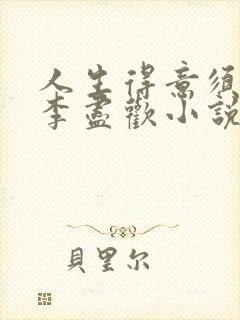 人生得意須
李盡歡小說
貝里尔